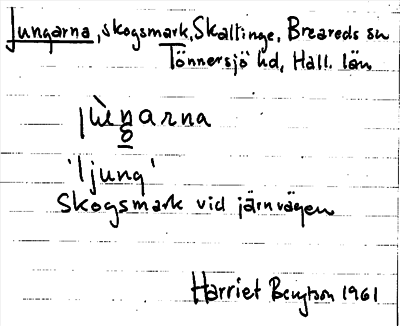 Jungarna, skogsmark, Skaltinge, Breareds sn
Tönnersjö hd, Hall. län
'ljung'
Skogsmark vid järnvägen
Harriet Bengtson 1961